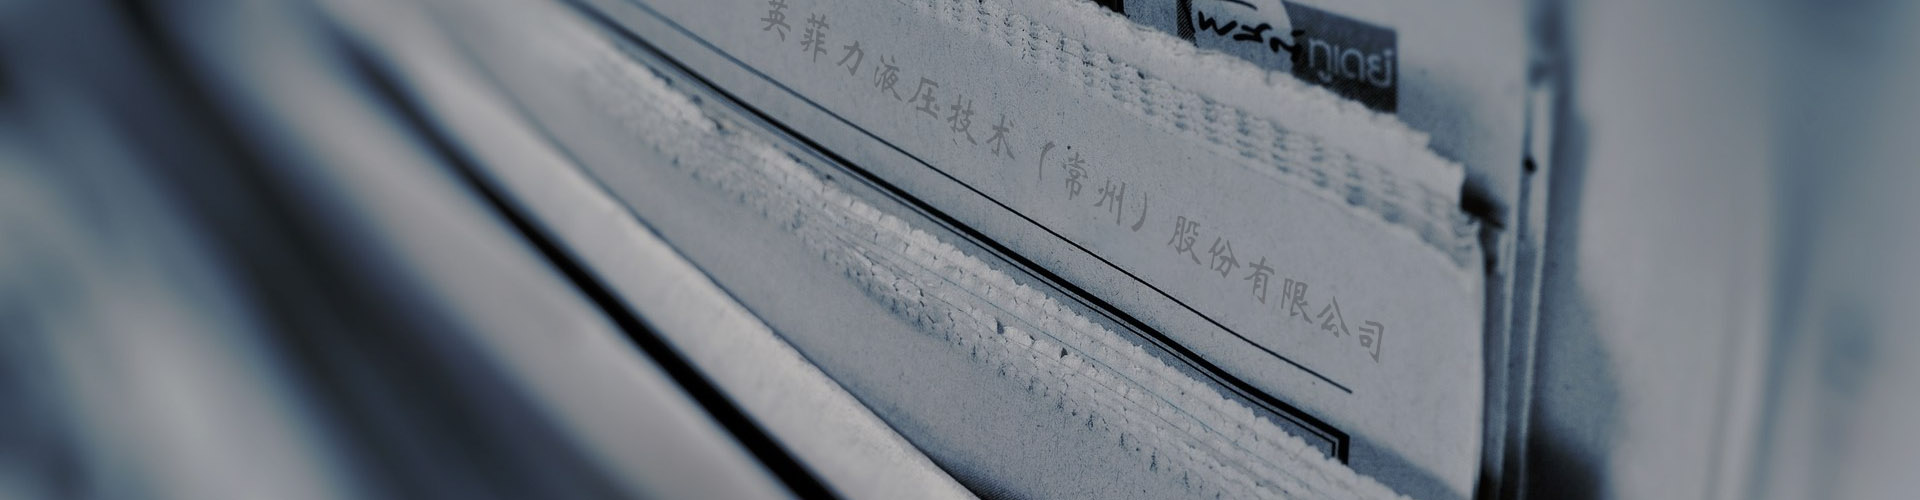 英菲力液压技术（常州）股份有限公司